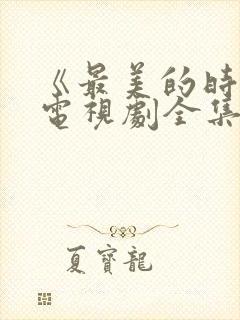 《最美的時
電視劇全集
夏寶龍